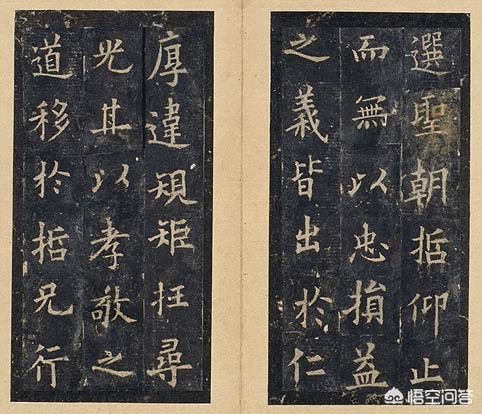 選聖朝哲仰止
而無以忠損益
之義皆出於仁
厚違規矩枉尋
光其以孝敬之
道移於哲兄行
悟空问答